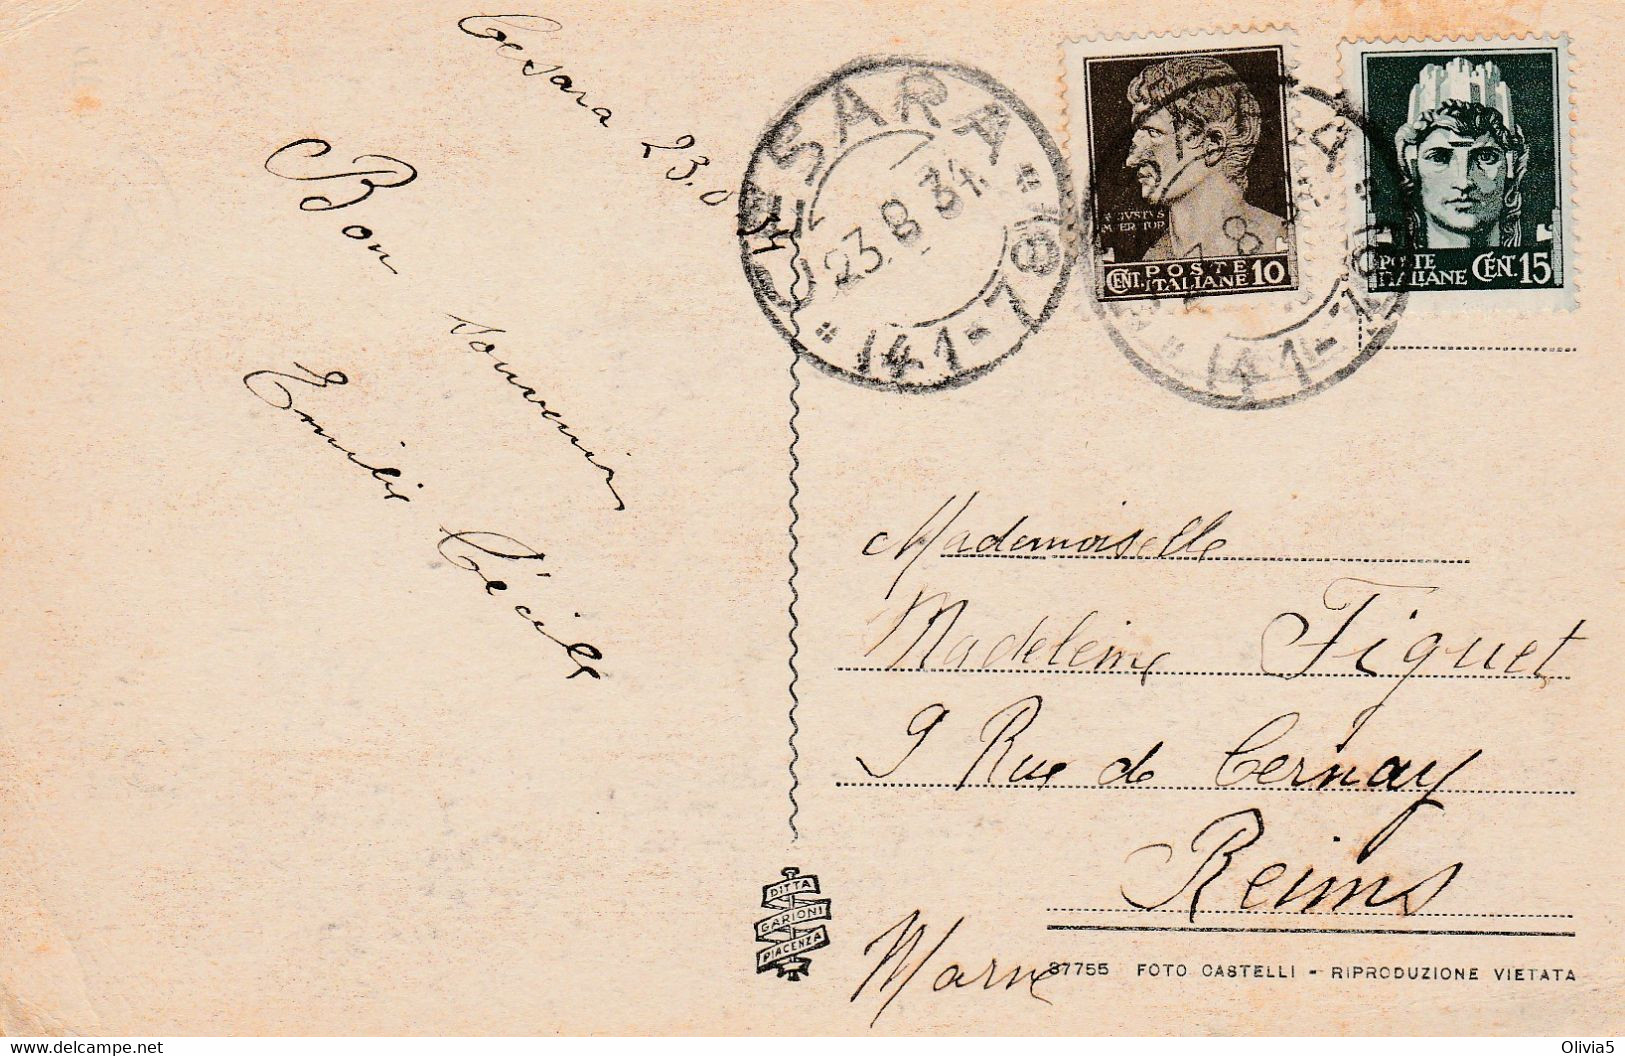 Cesara 23.8.34
Bon souvenir
Emilie Cécile
CESARA
23.8.34.
(41-70)
AVGVSTVS
IMPERATOR
POSTE
CENT. ITALIANE 10
POSTE
ITALIANE CENT. 15
Mademoiselle
Madeleine Fiquet
9 Rue de Cernay
Reims
Marne
DITTA
GARIONI
PIACENZA
37755 FOTO CASTELLI - RIPRODUZIONE VIETATA
delcampe.net
Olivia5